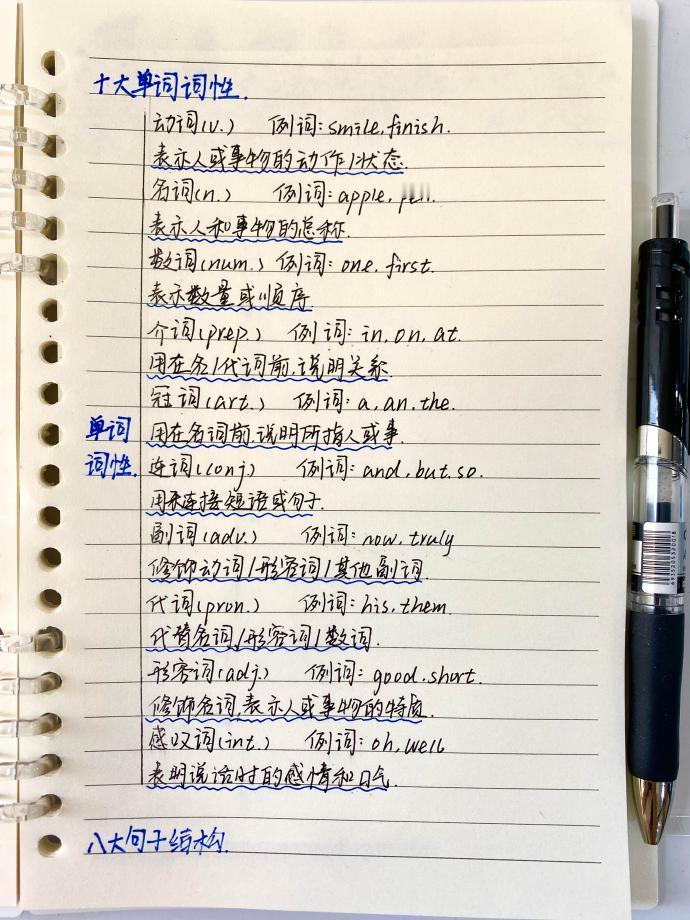 十大单词词性.
动词(v.) 例词: smile, finish.
表示人或事物的动作/状态.
名词(n.) 例词: apple,
表示人和事物的总称.
数词(num.) 例词: one. first.
表示数量或顺序.
介词(prep.) 例词: in, on, at.
用在名/代词前,说明关系.
冠词(art.) 例词: a, an, the.
单词 用在名词前,说明所指人或事.
词性. 连词(conj) 例词: and, but, so.
用来连接短语或句子.
副词(adv.) 例词: now, truly
修饰动词/形容词/其他副词.
代词(pron.) 例词: his, them.
代替名词/形容词/数词.
形容词(adj.) 例词: good. short.
修饰名词,表示人或事物的特质.
感叹词(int.) 例词: oh, well
表明说话时的感情和口气.
八大句子结构.